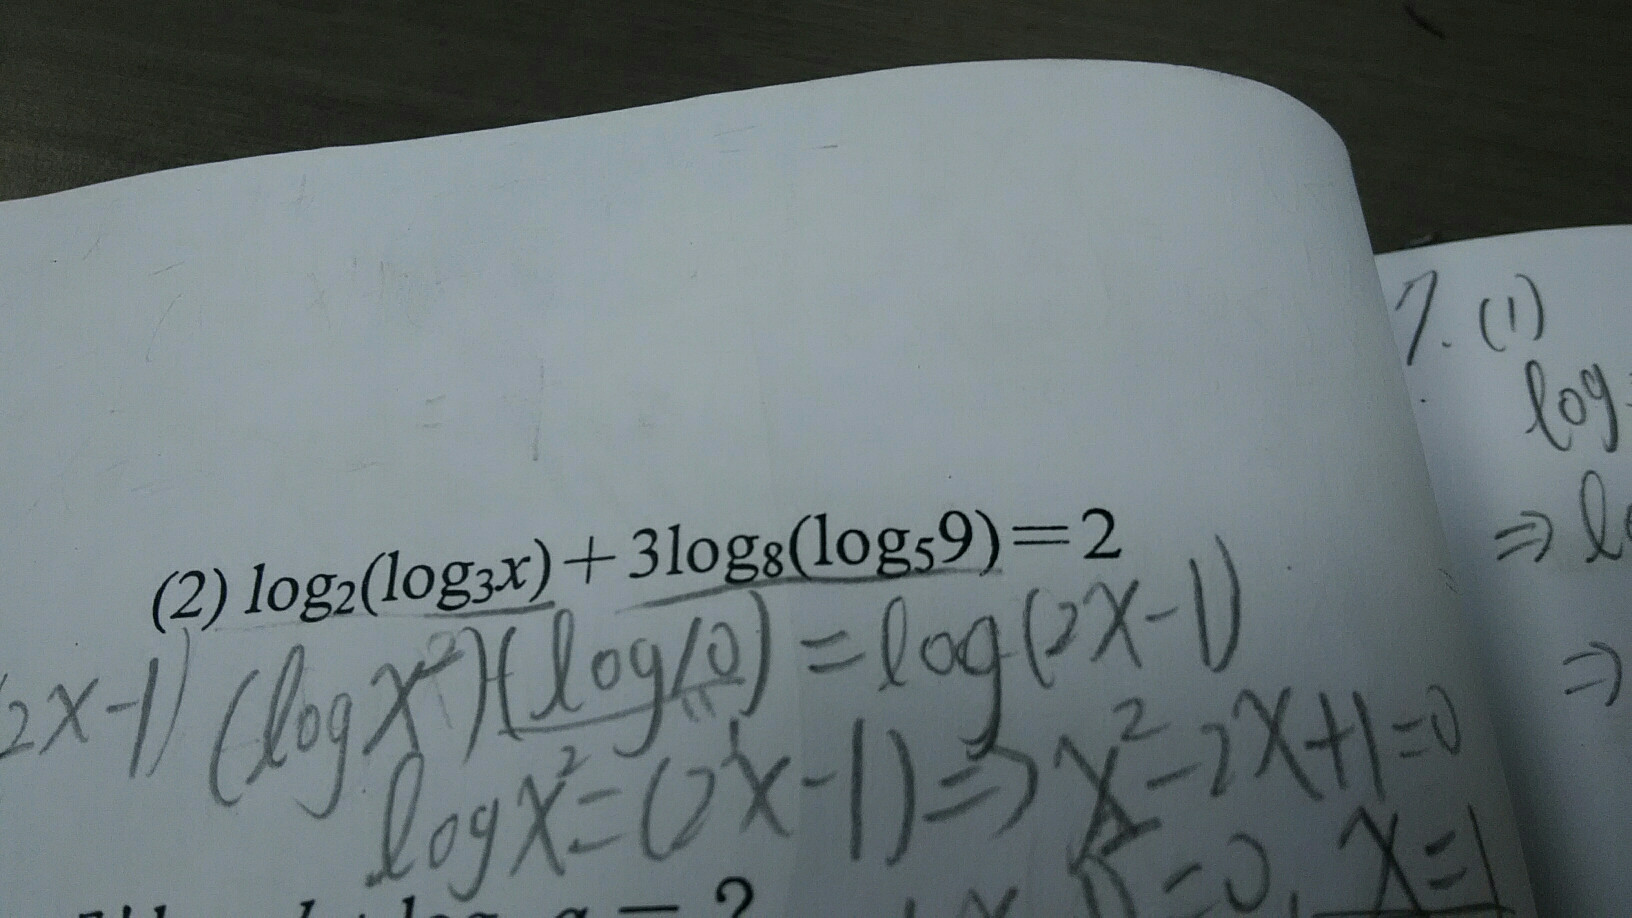 7. (1)
log
(2) log₂(log₃x)+3log₈(log₅9)=2
2x-1) (log x²)(log10) = log(2x-1)
log x² = (2x-1) ⇒ x²-2x+1=0
=0, x=1
= 2